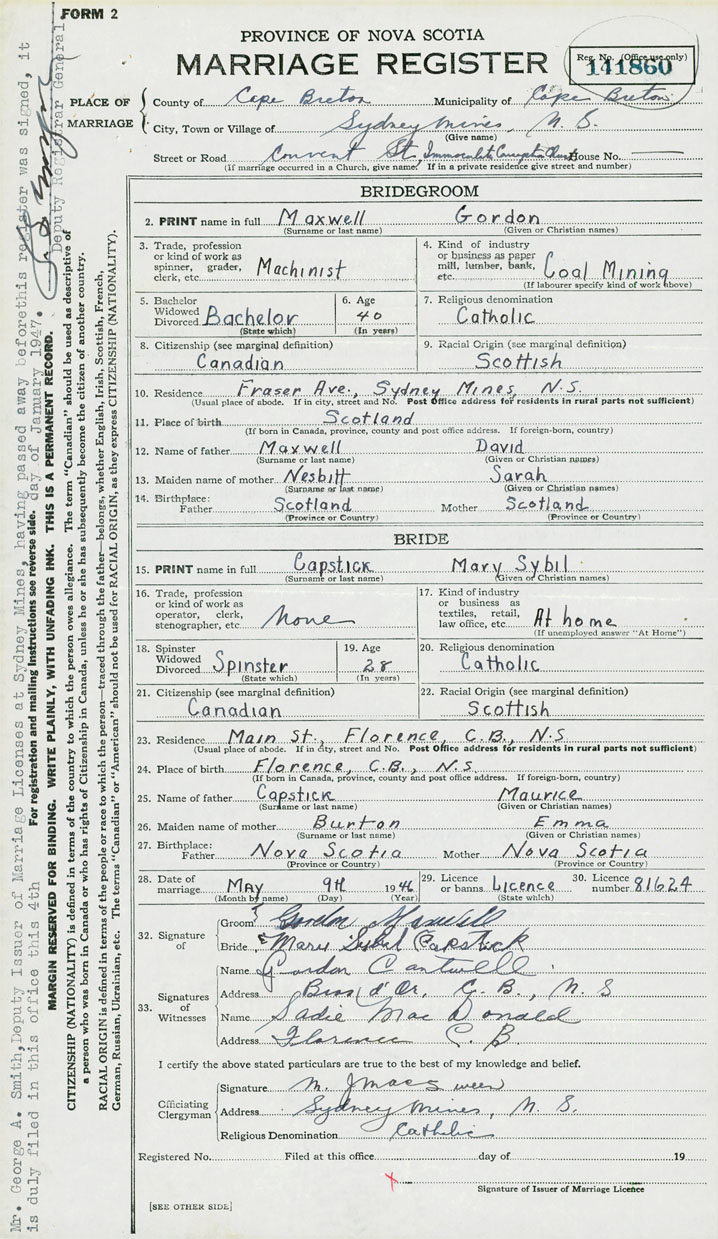 FORM 2
PROVINCE OF NOVA SCOTIA
MARRIAGE REGISTER
Reg. No. (Office use only)
141860
PLACE OF MARRIAGE
County of Cape Breton Municipality of Cape Breton
City, Town or Village of Sydney Mines, N. S.
(Give name)
Street or Road Convent St. Immaculate Conception Church House No.
(If marriage occurred in a Church, give name. If in a private residence give street and number)
BRIDEGROOM
2. PRINT name in full Maxwell Gordon
(Surname or last name) (Given or Christian names)
3. Trade, profession or kind of work as spinner, grader, clerk, etc. Machinist
4. Kind of industry or business as paper mill, lumber, bank, etc. Coal Mining
(If labourer specify kind of work above)
5. Bachelor Widowed Divorced Bachelor
(State which)
6. Age 40
(In years)
7. Religious denomination
Catholic
8. Citizenship (see marginal definition)
Canadian
9. Racial Origin (see marginal definition)
Scottish
10. Residence Fraser Ave., Sydney Mines, N.S.
(Usual place of abode. If in city, street and No. Post Office address for residents in rural parts not sufficient)
11. Place of birth Scotland
(If born in Canada, province, county and post office address. If foreign-born, country)
12. Name of father Maxwell David
(Surname or last name) (Given or Christian names)
13. Maiden name of mother Nesbitt Sarah
(Surname or last name) (Given or Christian names)
14. Birthplace: Father Scotland Mother Scotland
(Province or Country) (Province or Country)
BRIDE
15. PRINT name in full Capstick Mary Sybil
(Surname or last name) (Given or Christian names)
16. Trade, profession or kind of work as operator, clerk, stenographer, etc. None
17. Kind of industry or business as textiles, retail, law office, etc. At home
(If unemployed answer "At Home")
18. Spinster Widowed Divorced Spinster
(State which)
19. Age 28
(In years)
20. Religious denomination
Catholic
21. Citizenship (see marginal definition)
Canadian
22. Racial Origin (see marginal definition)
Scottish
23. Residence Main St., Florence, C.B., N.S
(Usual place of abode. If in city, street and No. Post Office address for residents in rural parts not sufficient)
24. Place of birth Florence, C.B., N.S.
(If born in Canada, province, county and post office address. If foreign-born, country)
25. Name of father Capstick Maurice
(Surname or last name) (Given or Christian names)
26. Maiden name of mother Burton Emma
(Surname or last name) (Given or Christian names)
27. Birthplace: Father Nova Scotia Mother Nova Scotia
(Province or Country) (Province or Country)
28. Date of marriage May 9th 1946
(Month by name) (Day) (Year)
29. Licence or banns Licence
(State which)
30. Licence number 81624
32. Signature of
Groom Gordon Maxwell
Bride Mary Sybil Capstick
33. Signatures of Witnesses
Name Gordon Cantwell
Address Bras d'Or, C. B., N. S
Name Sadie Mac Donald
Address Florence C. B
I certify the above stated particulars are true to the best of my knowledge and belief.
Officiating Clergyman
Signature M. J
Address Sydney Mines, N. S.
Religious Denomination Catholic
Registered No. Filed at this office day of 19
Signature of Issuer of Marriage Licence
[SEE OTHER SIDE]
Mr. George A. Smith, Deputy Issuer of Marriage Licenses at Sydney Mines, having passed away before this register was signed, it
is duly filed in this office this 4th day of January 1947.
Deputy Registrar General
For registration and mailing instructions see reverse side.
MARGIN RESERVED FOR BINDING. WRITE PLAINLY, WITH UNFADING INK. THIS IS A PERMANENT RECORD.
CITIZENSHIP (NATIONALITY) is defined in terms of the country to which the person owes allegiance. The term "Canadian" should be used as descriptive of
a person who was born in Canada or who has rights of Citizenship in Canada, unless he or she has subsequently become the citizen of another country.
RACIAL ORIGIN is defined in terms of the people or race to which the person—traced through the father—belongs, whether English, Irish, Scottish, French,
German, Russian, Ukrainian, etc. The terms "Canadian" or "American" should not be used for RACIAL ORIGIN, as they express CITIZENSHIP (NATIONALITY).